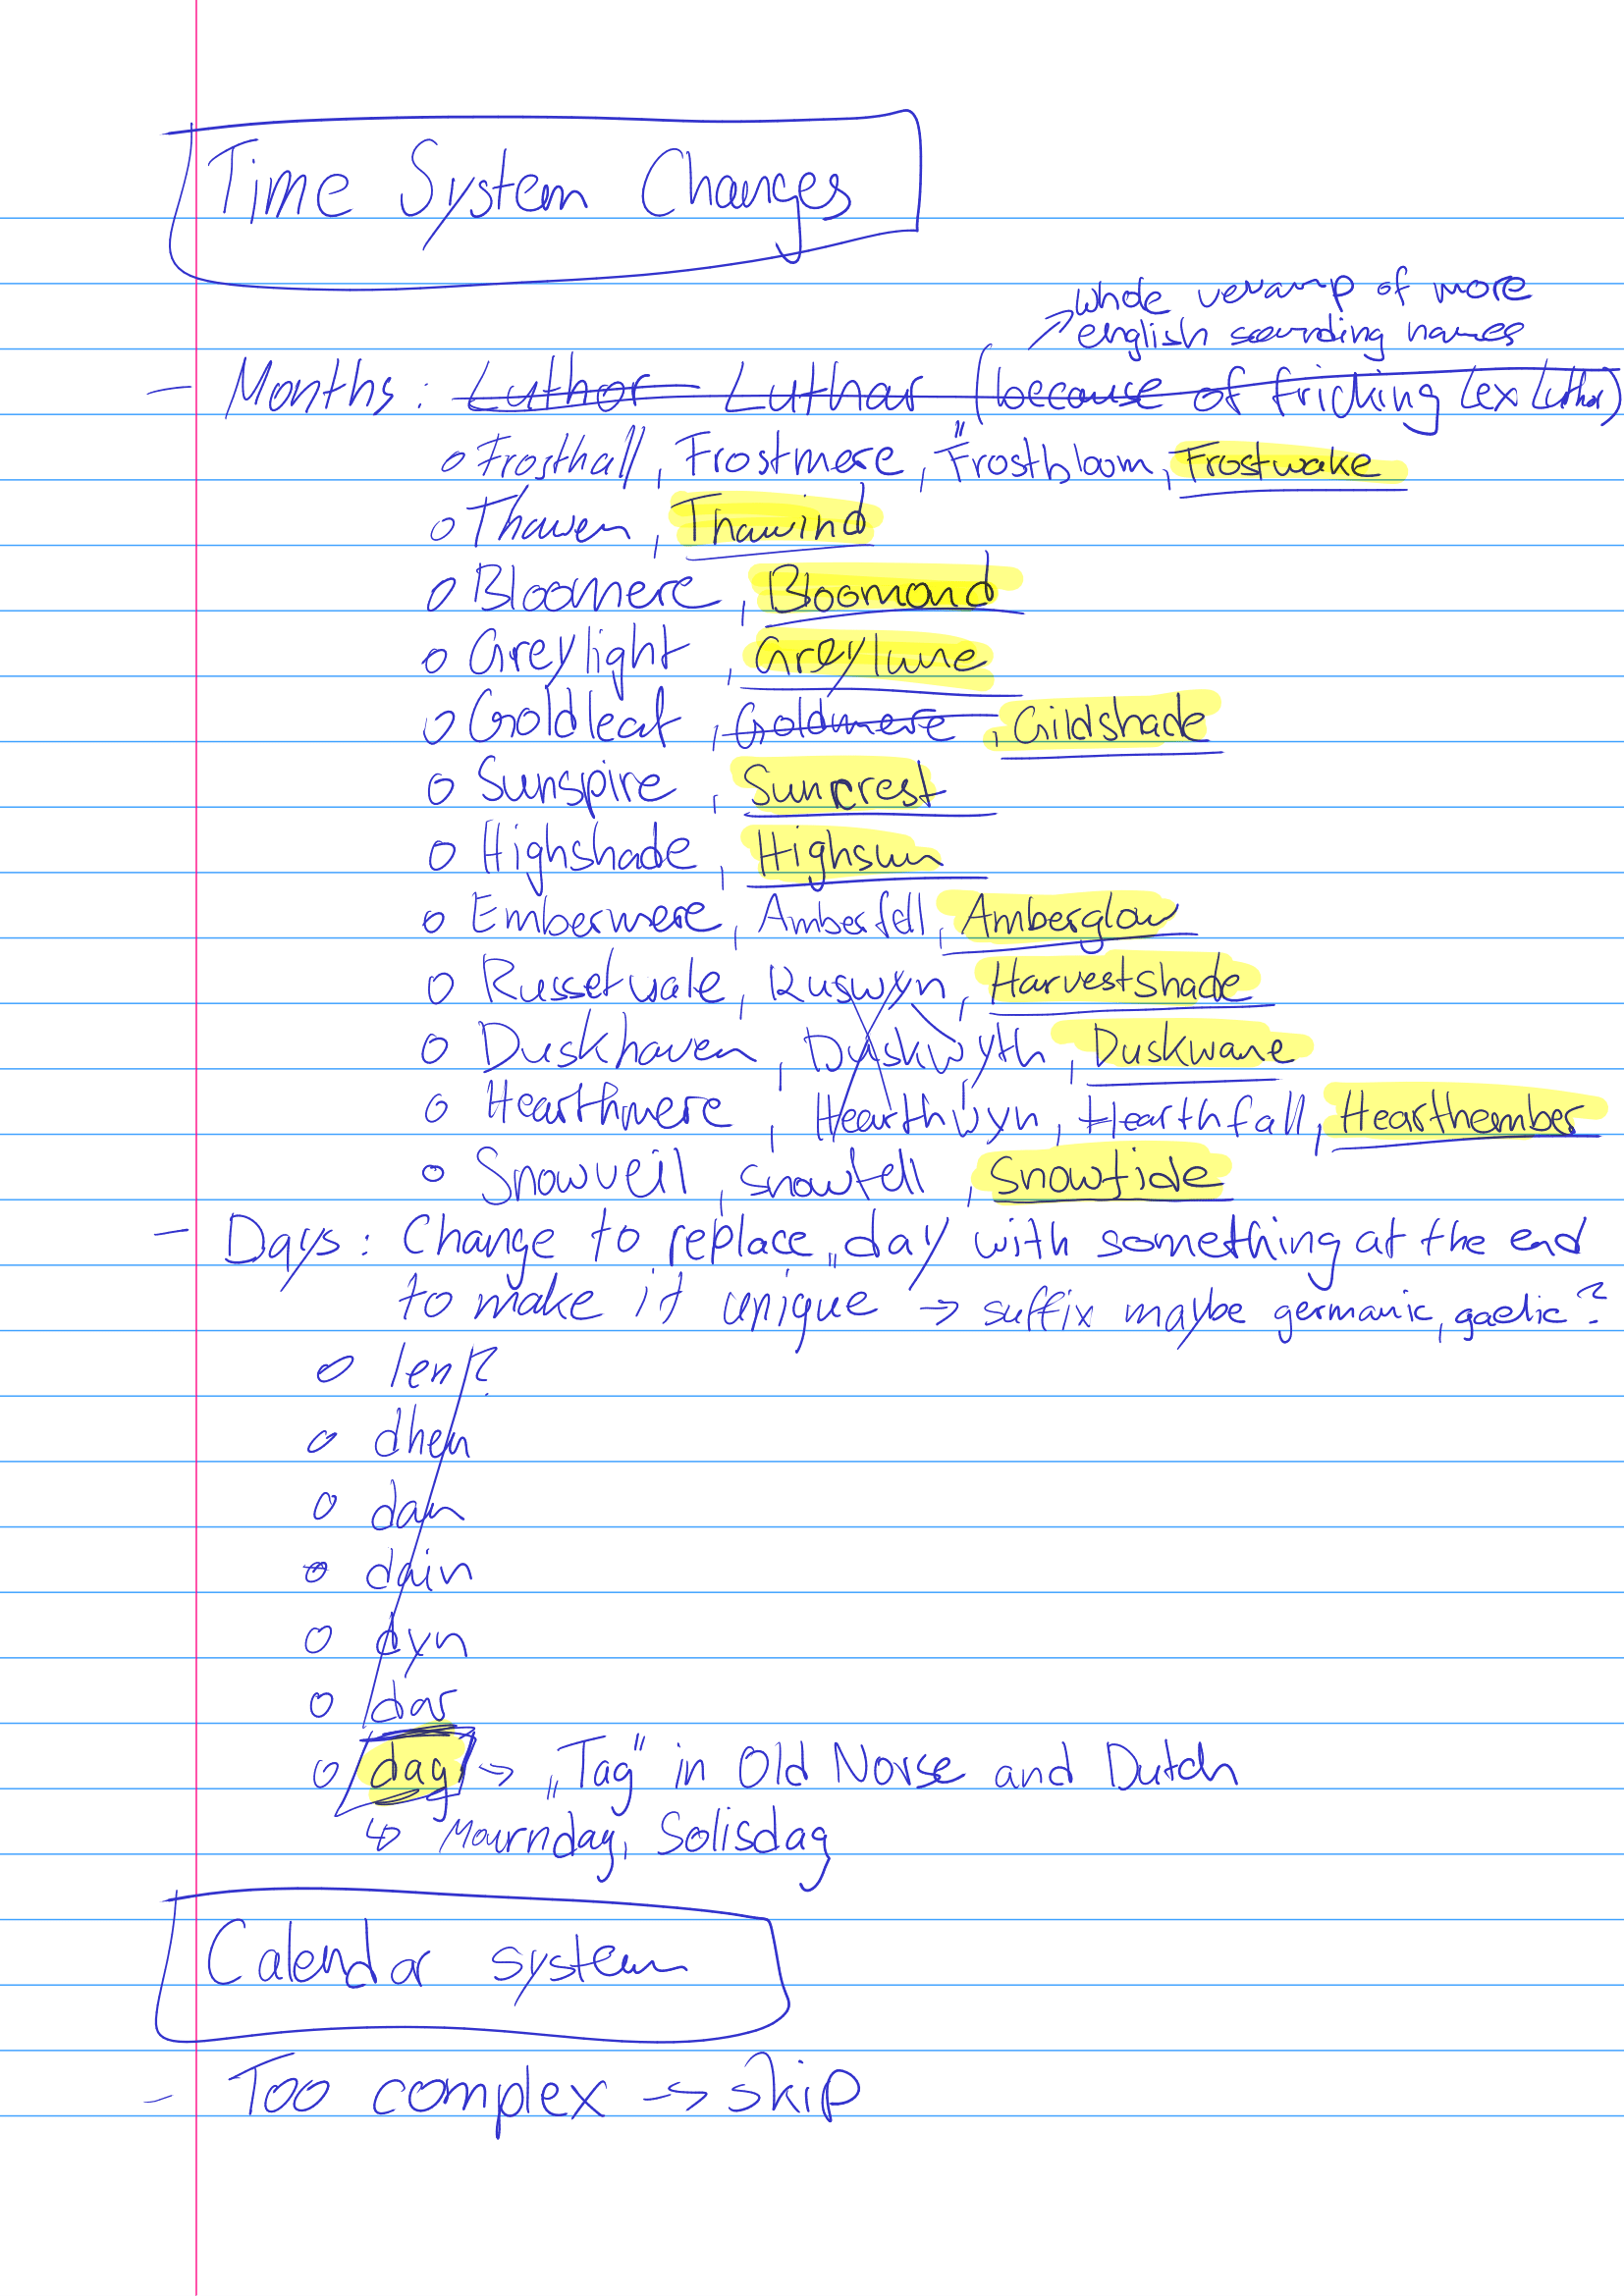 Time System Changes
whole revamp of more
english sounding names
- Months: Luthor Luthar (because of fricking Lex Luthor)
o Frosthall, Frostmere, Frostbloom, Frostwake
o Thawen, Thawind
o Bloomere, Bloomond
o Greylight, Greylune
o Goldleaf, Goldmere, Gildshade
o Sunspire, Suncrest
o Highshade, Highsun
o Embermere, Amberfell, Amberglow
o Russetvale, Ruswyn, Harvestshade
o Duskhaven, Duskwyth, Duskwane
o Hearthmere, Hearthwyn, Hearthfall, Hearthember
o Snowveil, snowfell, Snowtide
- Days: Change to replace „day with something at the end
to make it unique → suffix maybe germanic, gaelic?
o len?
o dhen
o dan
o dain
o dyn
o dar
o dag → „Tag" in Old Norse and Dutch
↳ Mourndag, Solisdag
Calendar system
- Too complex → skip